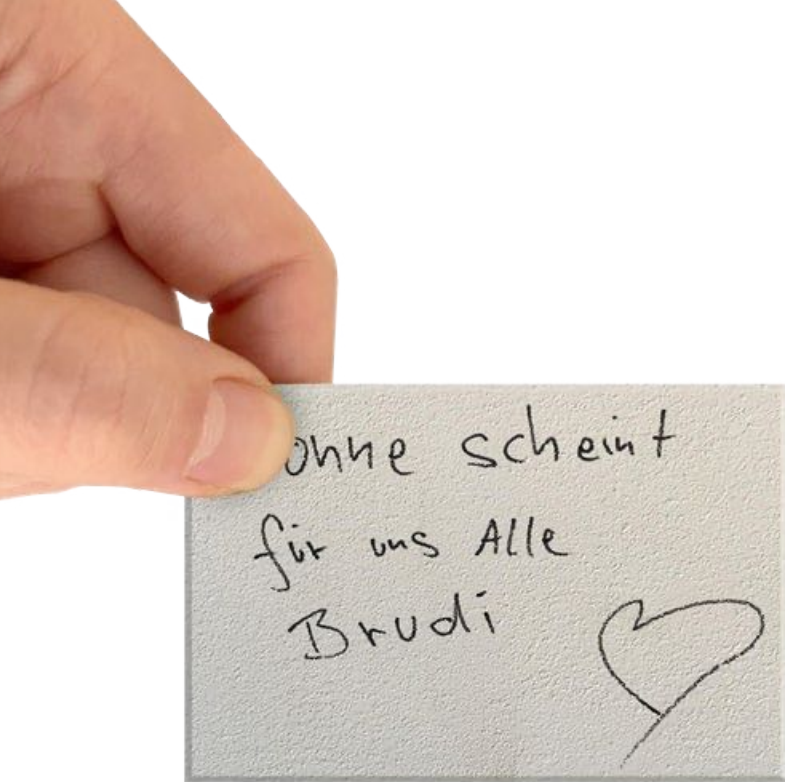 ohne scheint
für uns Alle
Brudi